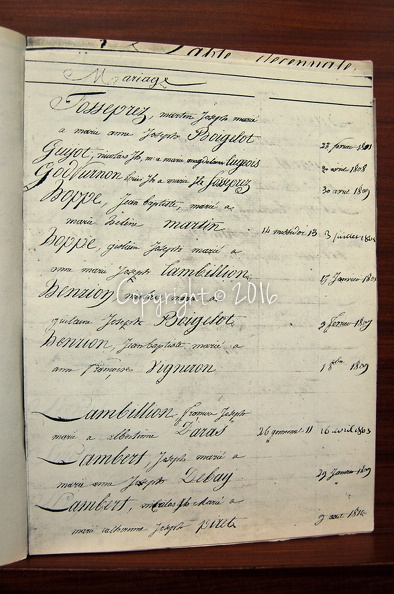 Table décennale
Mariage
Fosseprez, martin Joseph marié
a marie anne Joseph Boigelot 28 février 1801
Guyot, nicolas Jh, m. a marie magdelaine 20 avril 1808
Jh a marie Jh fosseprez 30 avril 1809
hoppe, Jean baptiste, marié a
marie heline martin 14 messidor 13 3 juillet
hoppe, guslain Joseph marié a
ann marie Joseph Lambillion 17 Janvier
henrion marié a
guilaine Joseph Boigelot 9 février 1809
henrion, Jean baptiste marié a
ann françoise Vigniron 1 8bre 1809
Lambillion, françois Joseph
marié a albertinne Daras 26 germinal 11 16 avril 1803
Lambert Joseph marié a
marie ann Joseph Debay 29 Janvier 1809
Lambert, Jh Marié a
marie catherinne Joseph piret 9 aout
Copyright © 2016